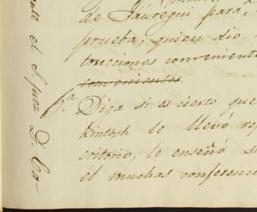 de Jáuregui para,
prueba, quien dio
trucciones conveniente
convenientes
6ª Diga si es cierto que
Kintosh le llevó
critorio, le enseñó su
él muchas conferenc
ante el Juez D. Ca